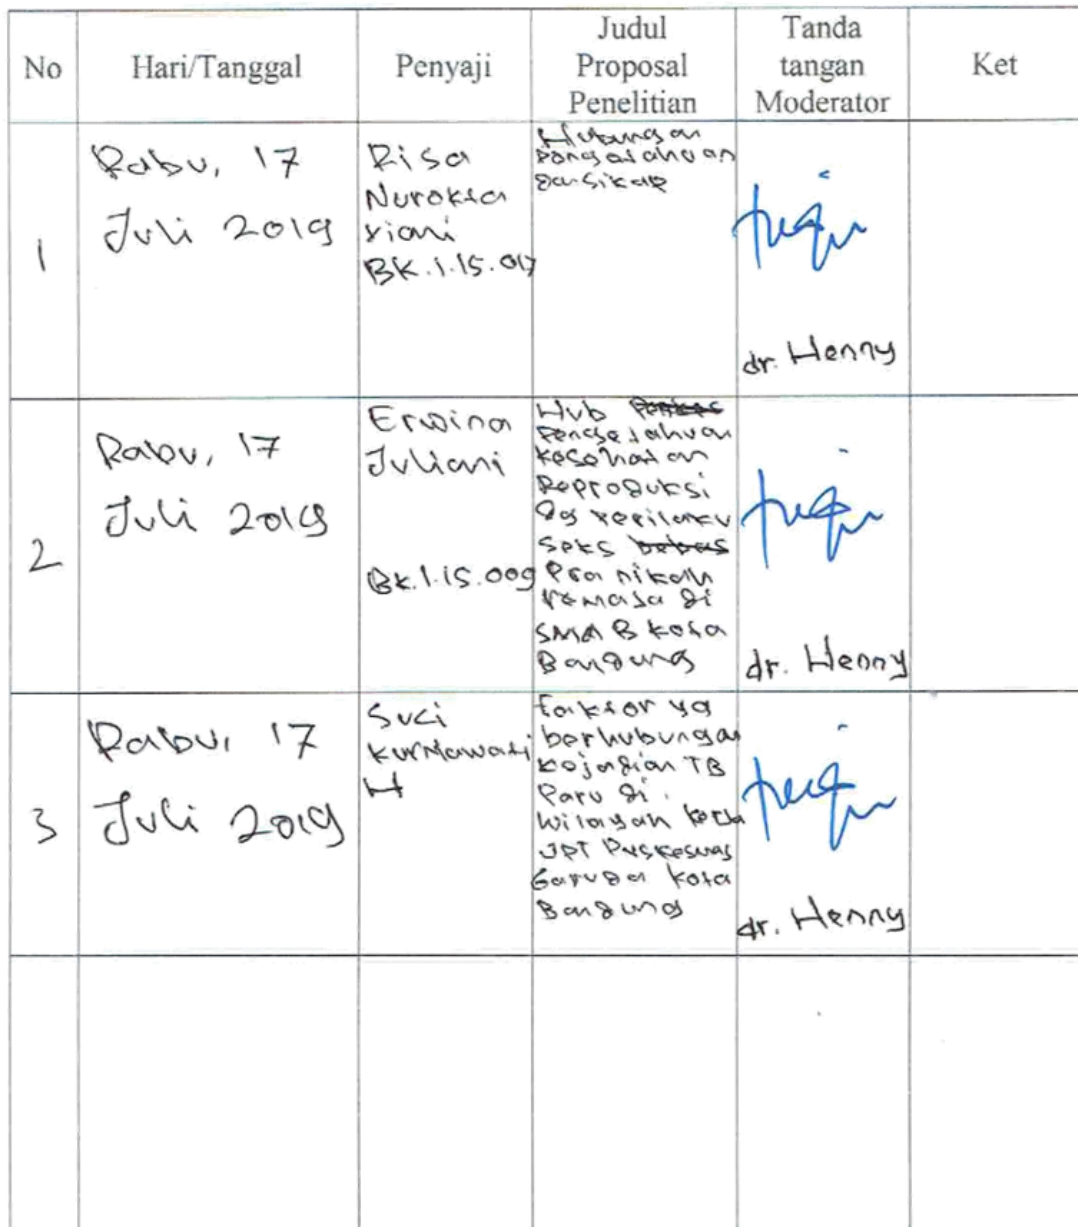 No Hari/Tanggal Penyaji Judul Proposal Penelitian Tanda tangan Moderator Ket
1
Rabu, 17
Juli 2019
Risa
Nurokta
viani
BK.1.15.017
Hubungan
pengetahuan
dan sikap
dr. Henny
2
Rabu, 17
Juli 2019
Erwina
Juliani
BK.1.15.009
Hub
Pengetahuan
kesehatan
Reproduksi
dg perilaku
seks
Pra nikah
remaja di
SMA B kota
Bandung
dr. Henny
3
Rabu, 17
Juli 2019
Suci
kurniawati
H
Faktor yg
berhubungan
kejadian TB
Paru di
wilayah kerja
UPT Puskesmas
Garuda kota
Bandung
dr. Henny